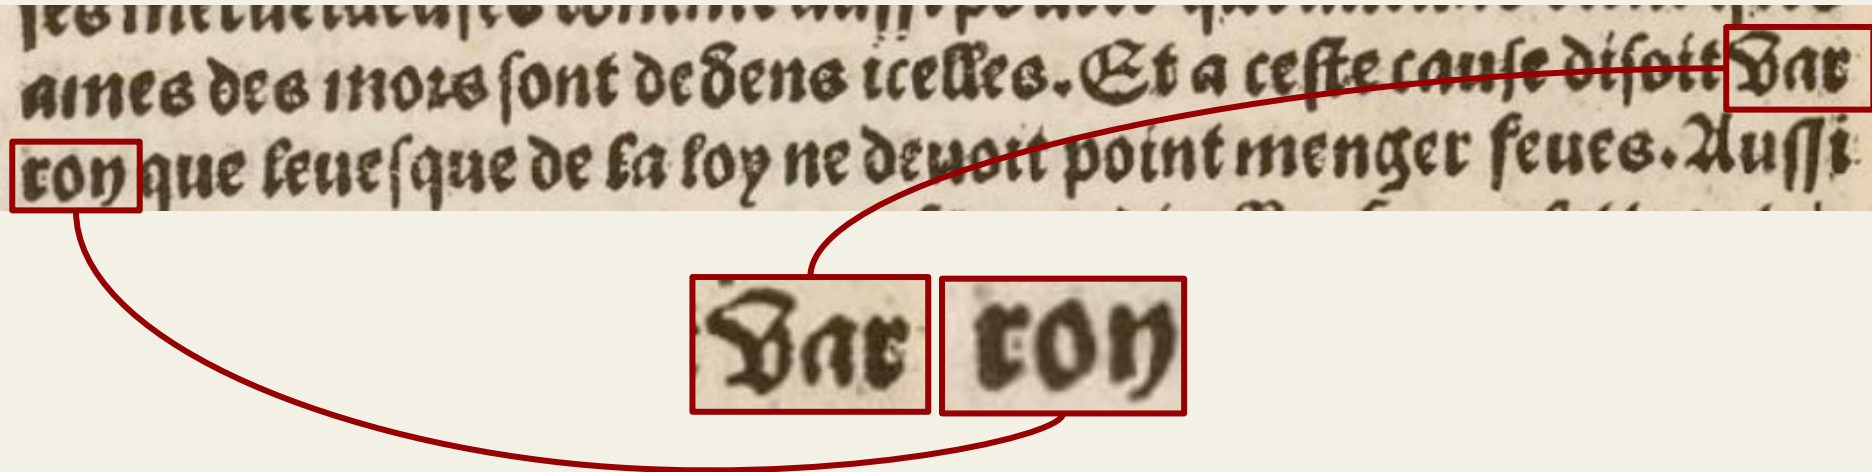 ames des mors sont dedens icelles. Et a ceste cause disoit Var
ron que leuesque de la loy ne deuoit point menger feues. Aussi
Var ron